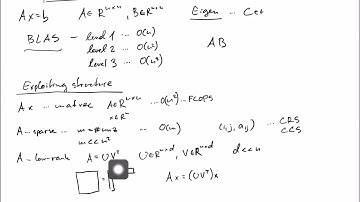 Ax=b   A∈ℝⁿˣⁿ, B∈ℝⁿˣⁿ   Eigen ... C++
BLAS – level 1 ... O(n)   AB
level 2 ... O(n²)
level 3 ... O(n³)
Exploiting structure
Ax ... matvec   A∈ℝⁿˣⁿ ... O(n²) ... FLOPS
x∈ℝⁿ
A – sparse ... m = # nnz ... O(m)   (i,j,aᵢⱼ) ... CRS
m << n²   CCS
A – low-rank   A = UVᵀ   U∈ℝⁿˣᵈ, V∈ℝⁿˣᵈ   d << n
=   Ax = (UVᵀ)x